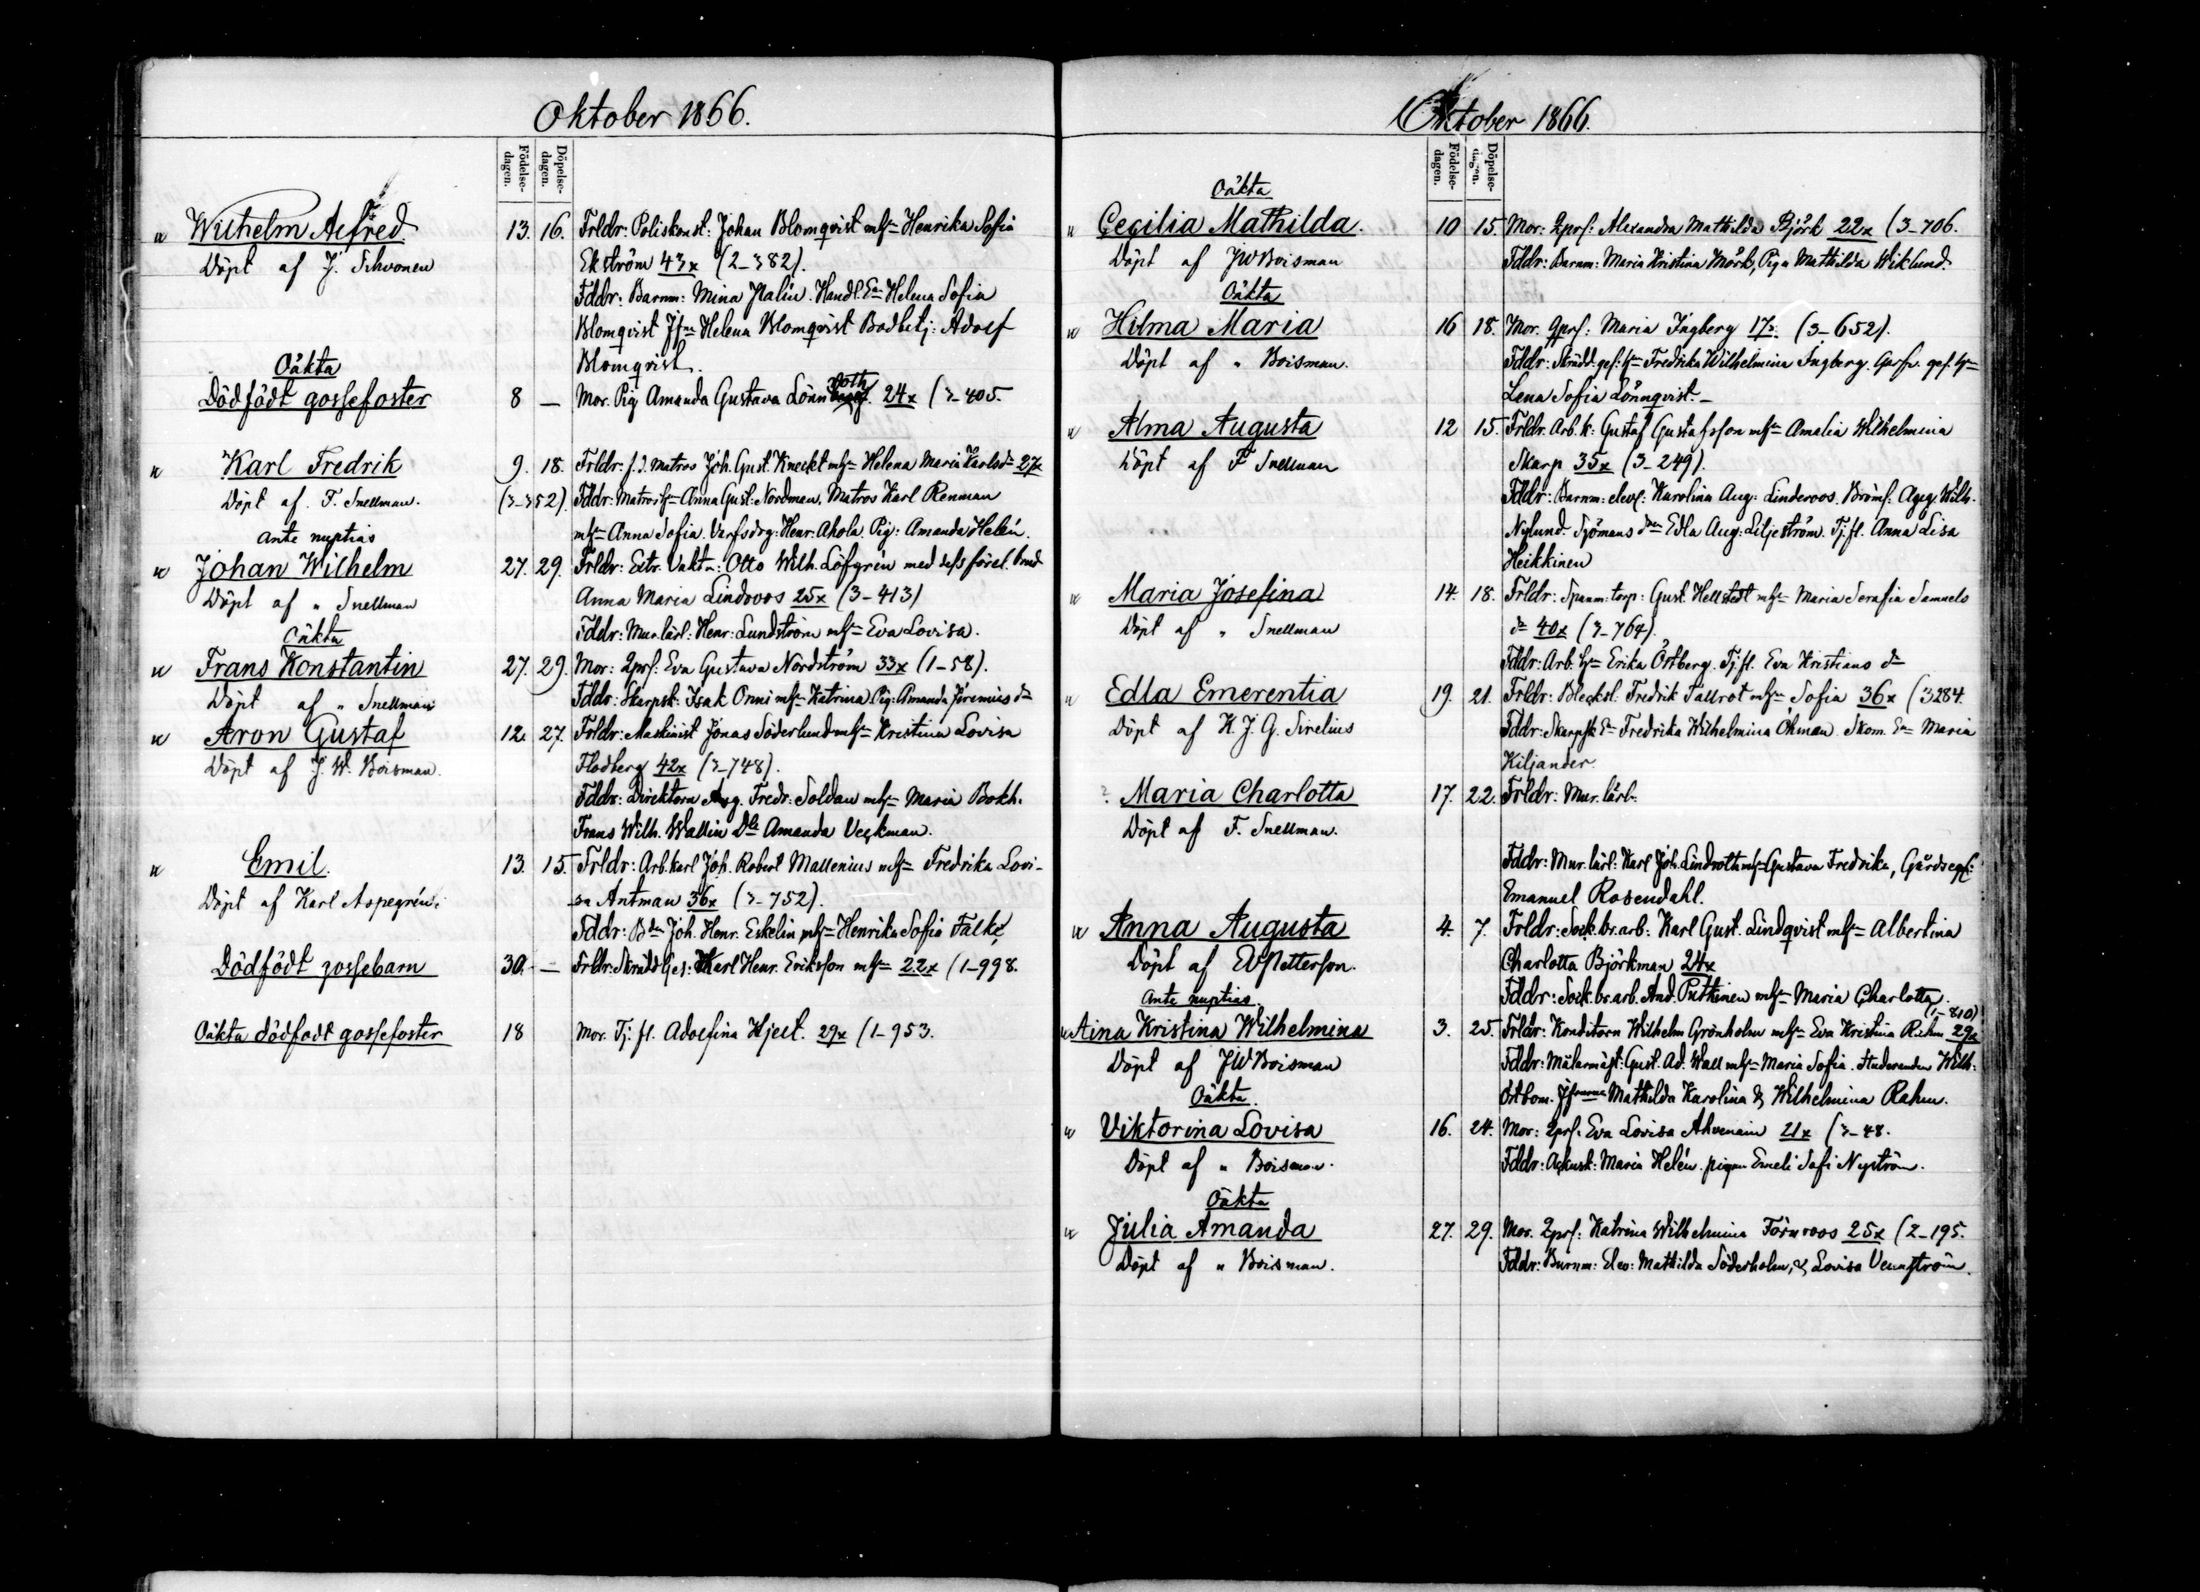 Oktober 1866.
Födelse-dagen.
Döpelse-dagen.
Wilhelm Alfred. 13. 16. Frldr: Poliskonst: Johan Blomqvist mhn Henrika Sofia
Döpt af J. Sihvonen Ekström 43x (2-382).
Fddr: Barnm: Mina Halin. Handl. En Helena Sofia
Blomqvist Jfn Helena Blomqvist Bodbetj: Adolf
Blomqvist.
Oäkta
Dödfödt gossefoster 8 — Mor. Pig Amanda Gustava Lönnroth. 24x (3-405.
Karl Fredrik 9. 18. Frldr: f.d. Matros Joh. Gust. Kneckt mhn Helena Maria Karlsdr 27x
Döpt af F. Snellman. (3-352). Fddr: Matros hn Anna Gust: Nordman. Matros Karl Renman
mhn Anna Sofia. Varfsdrg: Henr: Ahola. Pig: Amanda Helén.
Ante nuptias
Johan Wilhelm 27. 29. Frldr: Extr. Vaktm: Otto Wilh. Löfgrén med dess förel. brud
Döpt af " Snellman Anna Maria Lindroos 25x (3-413)
Fddr: Mur. lärl: Henr: Lundström mhn Eva Lovisa.
Oäkta
Frans Konstantin 27. 29. Mor: Qprs: Eva Gustava Nordström 33x (1-58).
Döpt af " Snellman Fddr: Skarpsk: Isak Onni mhn Katrina. Pig: Amanda Jeremias dr
Aron Gustaf 12. 27. Frldr: Maskinist Jonas Söderlund mhn Kristina Lovisa
Döpt af J. W. Boisman. Flodberg 42x (3-748).
Fddr: Direktorn Aug. Fredr: Soldan mhn Maria Bokh.
Frans Wilh. Wallin Dlle Amanda Veckman.
Emil. 13. 15. Frldr: Arb.karl Joh. Robert Mallenius mhn Fredrika Lovi-
Döpt af Karl Aspegrén. sa Antman 36x (3-752).
Fddr: Bdn Joh. Henr. Eskelin mhn Henrika Sofia Falke
Dödfödt gossebarn 30. — Frldr: Skrädd Ges: Karl Henr. Eriksson mhn 22x (1-998.
Oäkta dödfödt gossefoster 18 Mor. Tj. fl. Adolfina Hjelt. 29x (1-953.
Oktober 1866.
Födelse-dagen.
Döpelse-dagen.
Oäkta
Cecilia Mathilda. 10 15. Mor: Qprs: Alexandra Mathilda Björk 22x (3-706.
Döpt af JW Boisman Fddr: Barnm: Maria Kristina Mörk, Pign Mathilda Wiklund.
Oäkta
Hilma Maria 16 18. Mor. Qprs: Maria Ingberg 17x (3-652).
Döpt af " Boisman. Fddr: Skrädd. ges: hn Fredrika Wilhelmina Ingberg. Garfv. ges. hn
Lena Sofia Lönnqvist. —
Alma Augusta 12 15. Frldr. Arb.k: Gustaf Gustafsson mhn Amalia Wilhelmina
Döpt af F Snellman Skarp 35x (3-249).
Fddr: Barnm: elev: Karolina Aug: Linderoos. Wilh.
Nylund. Sjömans dn Edla Aug: Liljeström. Tj. fl. Anna Lisa
Heikkinen
Maria Josefina 14. 18. Frldr: Spanm: torp: Gust. Hellstedt mhn Maria Serafia Samuels
Döpt af " Snellman dr 40x (3-764).
Fddr: Arb. hn Erika Östberg. Tj. fl. Eva Kristians dr
Edla Emerentia 19. 21. Frldr: Blecksl. Fredrik Tallrot mhn Sofia 36x (3 284.
Döpt af K. J. G. Sirelius Fddr: Skarpsk En Fredrika Wilhelmina Öhman. Skom. En Maria
Kiljander.
Maria Charlotta 17. 22. Frldr: Mur. lärl.
Döpt af F. Snellman.
Fddr: Mur. lärl: Karl Joh. Lindroth mhn Gustava Fredrika, Gårdseg:
Emanuel Rosendahl.
Anna Augusta 4. 7. Frldr: Sock.br.arb: Karl Gust. Lindqvist mhn Albertina
Döpt af EV Petterson. Charlotta Björkman 24x
Fddr: Sock.br.arb. And. Putkinen mhn Maria Charlotta.
Ante nuptias. (1-810)
Aina Kristina Wilhelmina 3. 25. Frldr: Konditorn Wilhelm Grönholm mhn Eva Kristina Rahm 29x
Döpt af JW Boisman Fddr: Målarmäst: Gust. Ad. Wall mhn Maria Sofia. Studeranden Wilh.
Jfrurna Mathilda Karolina & Wilhelmina Rahm.
Oäkta.
Viktorina Lovisa 16. 24. Mor: Qprs. Eva Lovisa Ahvenain 21x (3-48.
Döpt af " Boisman. Fddr: Ackusk: Maria Helén. pigan Emeli Sofi Nyström.
Oäkta
Julia Amanda 27. 29. Mor. Qprs: Katrina Wilhelmina Törnroos 25x (2-195.
Döpt af " Boisman. Fddr: Barnm: Elev: Mathilda Söderholm, & Lovisa Vennström.